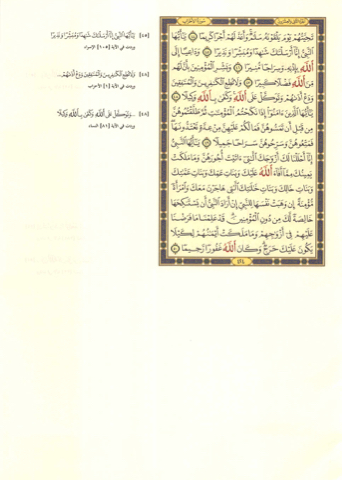 تَحِيَّتُهُمْ يَوْمَ يَلْقَوْنَهُ سَلَٰمٌ وَأَعَدَّ لَهُمْ أَجْرًا كَرِيمًا ۝ يَٰٓأَيُّهَا
ٱلنَّبِىُّ إِنَّآ أَرْسَلْنَٰكَ شَٰهِدًا وَمُبَشِّرًا وَنَذِيرًا ۝ وَدَاعِيًا إِلَى
ٱللَّهِ بِإِذْنِهِۦ وَسِرَاجًا مُّنِيرًا ۝ وَبَشِّرِ ٱلْمُؤْمِنِينَ بِأَنَّ لَهُم
مِّنَ ٱللَّهِ فَضْلًا كَبِيرًا ۝ وَلَا تُطِعِ ٱلْكَٰفِرِينَ وَٱلْمُنَٰفِقِينَ
وَدَعْ أَذَىٰهُمْ وَتَوَكَّلْ عَلَى ٱللَّهِ وَكَفَىٰ بِٱللَّهِ وَكِيلًا ۝
يَٰٓأَيُّهَا ٱلَّذِينَ ءَامَنُوٓا۟ إِذَا نَكَحْتُمُ ٱلْمُؤْمِنَٰتِ ثُمَّ طَلَّقْتُمُوهُنَّ
مِن قَبْلِ أَن تَمَسُّوهُنَّ فَمَا لَكُمْ عَلَيْهِنَّ مِنْ عِدَّةٍ تَعْتَدُّونَهَا
فَمَتِّعُوهُنَّ وَسَرِّحُوهُنَّ سَرَاحًا جَمِيلًا ۝ يَٰٓأَيُّهَا ٱلنَّبِىُّ
إِنَّآ أَحْلَلْنَا لَكَ أَزْوَٰجَكَ ٱلَّٰتِىٓ ءَاتَيْتَ أُجُورَهُنَّ وَمَا مَلَكَتْ
يَمِينُكَ مِمَّآ أَفَآءَ ٱللَّهُ عَلَيْكَ وَبَنَاتِ عَمِّكَ وَبَنَاتِ عَمَّٰتِكَ
وَبَنَاتِ خَالِكَ وَبَنَاتِ خَٰلَٰتِكَ ٱلَّٰتِى هَاجَرْنَ مَعَكَ وَٱمْرَأَةً
مُّؤْمِنَةً إِن وَهَبَتْ نَفْسَهَا لِلنَّبِىِّ إِنْ أَرَادَ ٱلنَّبِىُّ أَن يَسْتَنكِحَهَا
خَالِصَةً لَّكَ مِن دُونِ ٱلْمُؤْمِنِينَ ۗ قَدْ عَلِمْنَا مَا فَرَضْنَا
عَلَيْهِمْ فِىٓ أَزْوَٰجِهِمْ وَمَا مَلَكَتْ أَيْمَٰنُهُمْ لِكَيْلَا
يَكُونَ عَلَيْكَ حَرَجٌ ۗ وَكَانَ ٱللَّهُ غَفُورًا رَّحِيمًا ۝
يَٰٓأَيُّهَا ٱلنَّبِىُّ إِنَّآ أَرْسَلْنَٰكَ شَٰهِدًا وَمُبَشِّرًا وَنَذِيرًا
وَلَا تُطِعِ ٱلْكَٰفِرِينَ وَٱلْمُنَٰفِقِينَ وَدَعْ أَذَىٰهُمْ...
...وَتَوَكَّلْ عَلَى ٱللَّهِ وَكَفَىٰ بِٱللَّهِ وَكِيلًا